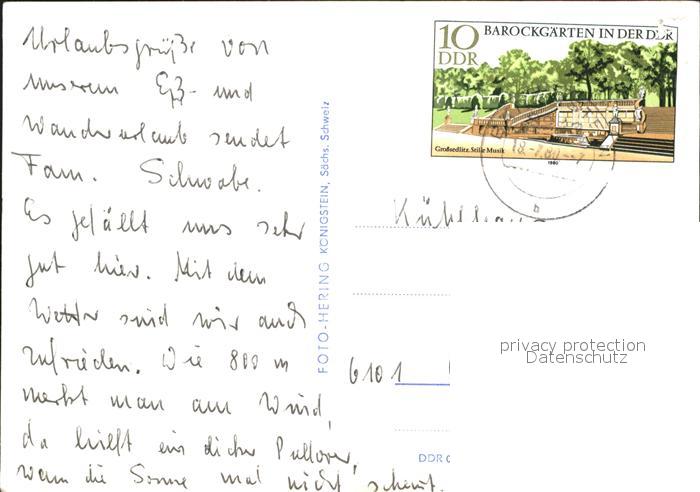 Urlaubsgrüße von
unserem Eß- und
Wanderurlaub sendet
Fam. Schwabe.
Es gefällt uns sehr
gut hier. Mit dem
Wetter sind wir auch
zufrieden. Die 800 m
merkt man am Wind,
da hilft ein dicker Pullover,
wenn die Sonne mal nicht scheint.
FOTO-HERING KÖNIGSTEIN, Sächs. Schweiz
10
DDR
BAROCKGÄRTEN IN DER DDR
Großsedlitz, Stille Musik
1980
6101
privacy protection
Datenschutz
DDR